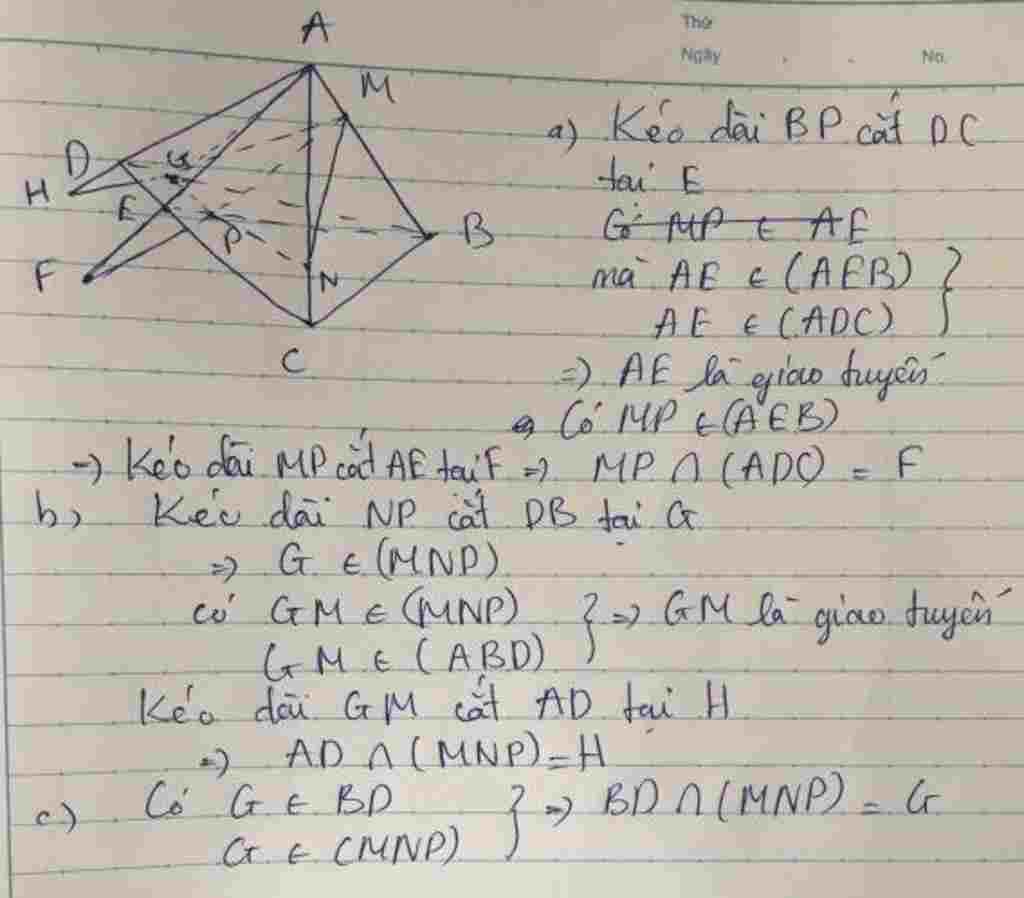 Thứ
Ngày
No.
A
M
D
G
H
E
P
B
F
N
C
a) Kéo dài BP cắt DC
tại E
Có MP ∈ AE
mà AE ∈ (AEB) }
AE ∈ (ADC)
=) AE là giao tuyến
Có MP ∈ (AEB)
=) Kéo dài MP cắt AE tại F =) MP ∩ (ADC) = F
b) Kéo dài NP cắt DB tại G
=) G ∈ (MNP)
có GM ∈ (MNP) } =) GM là giao tuyến
GM ∈ (ABD)
Kéo dài GM cắt AD tại H
=) AD ∩ (MNP) = H
c) Có G ∈ BD } =) BD ∩ (MNP) = G
G ∈ (MNP)